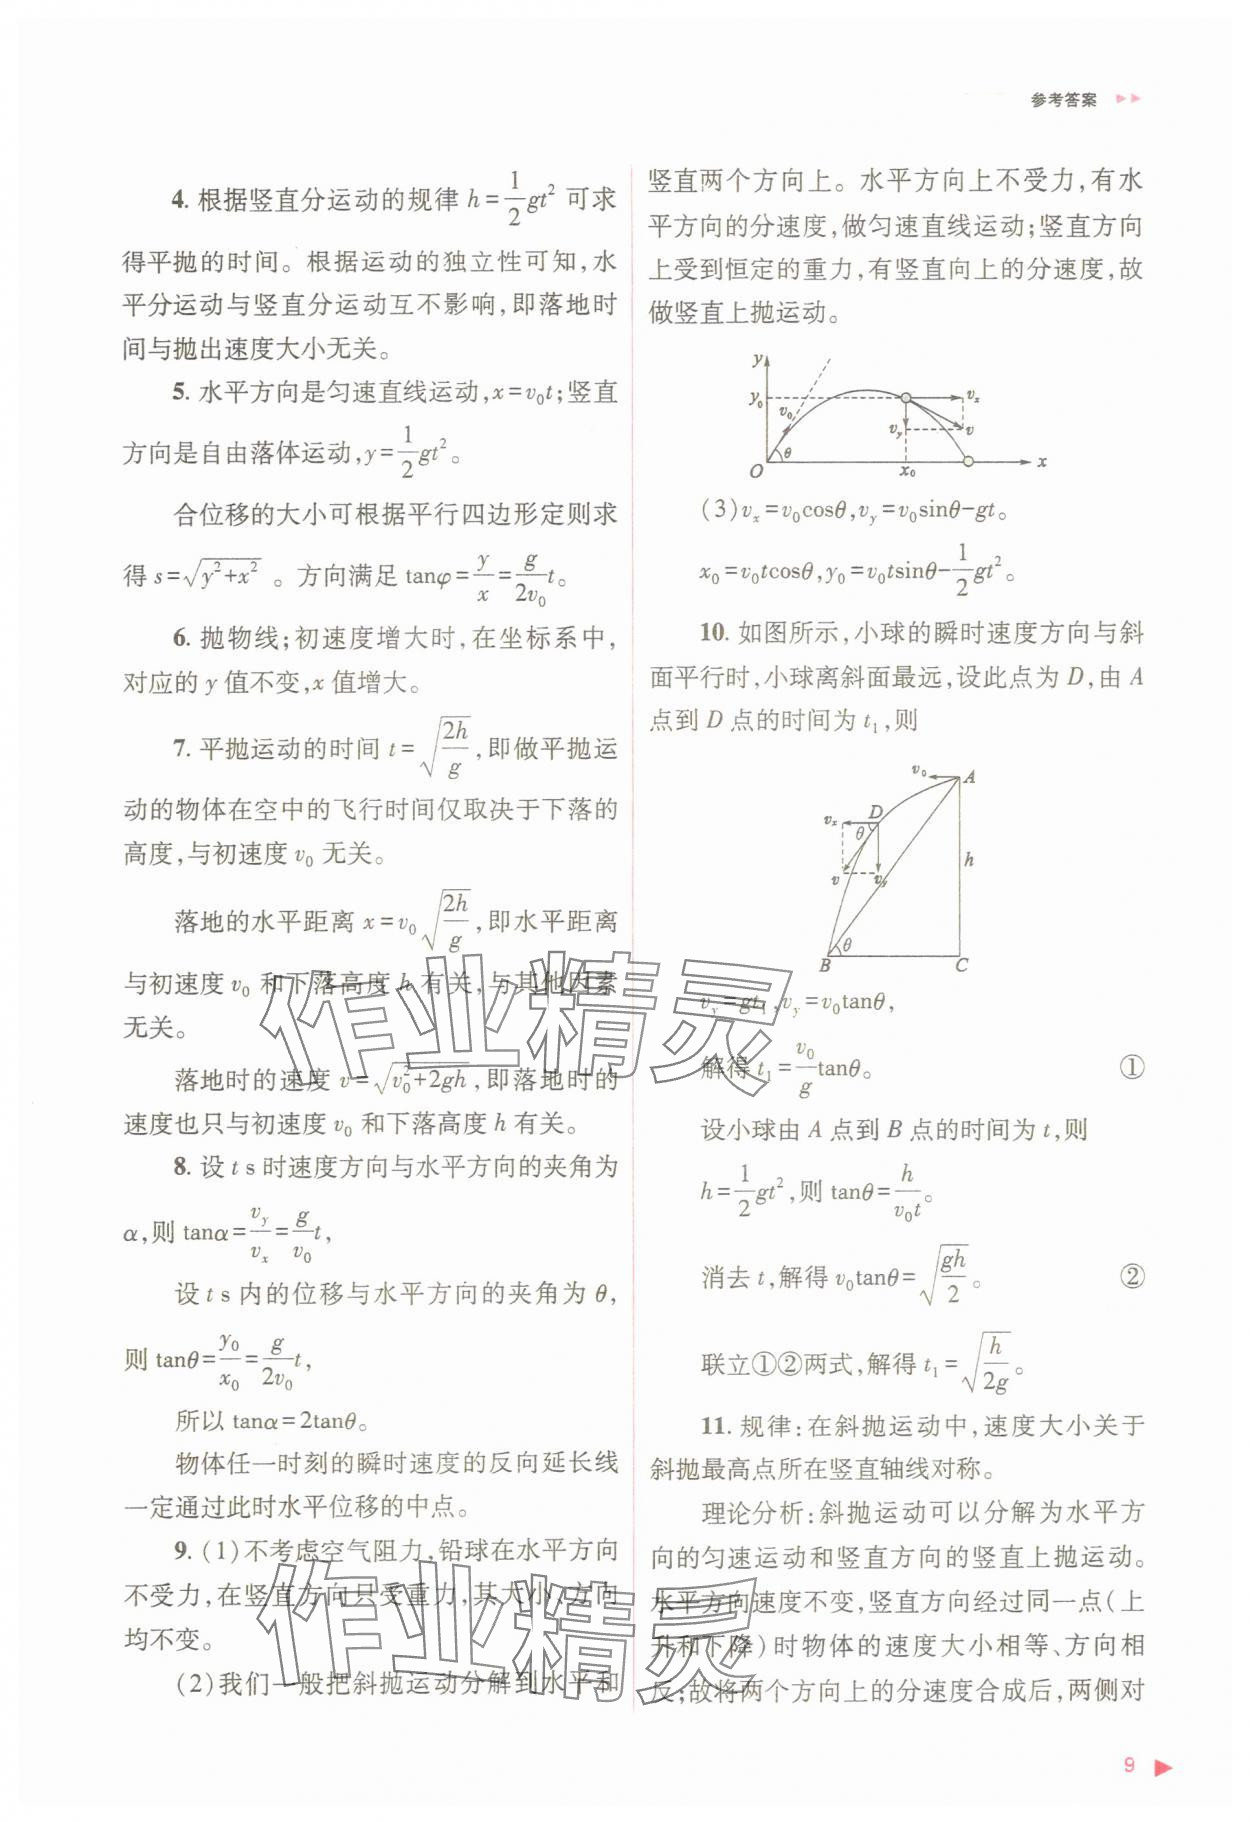 参考答案
4. 根据竖直分运动的规律 h=\frac{1}{2}gt² 可求
得平抛的时间。根据运动的独立性可知,水
平分运动与竖直分运动互不影响,即落地时
间与抛出速度大小无关。
5. 水平方向是匀速直线运动,x=v₀t;竖直
方向是自由落体运动,y=\frac{1}{2}gt²。
合位移的大小可根据平行四边形定则求
得 s=\sqrt{y²+x²}。方向满足 tanφ=\frac{y}{x}=\frac{g}{2v₀}t。
6. 抛物线;初速度增大时,在坐标系中,
对应的 y 值不变,x 值增大。
7. 平抛运动的时间 t=\sqrt{\frac{2h}{g}},即做平抛运
动的物体在空中的飞行时间仅取决于下落的
高度,与初速度 v₀ 无关。
落地的水平距离 x=v₀\sqrt{\frac{2h}{g}},即水平距离
与初速度 v₀ 和下落高度 h 有关,与其他因素
无关。
落地时的速度 v=\sqrt{v₀²+2gh},即落地时的
速度也只与初速度 v₀ 和下落高度 h 有关。
8. 设 t s 时速度方向与水平方向的夹角为
α,则 tanα=\frac{v_y}{v_x}=\frac{g}{v₀}t,
设 t s 内的位移与水平方向的夹角为 θ,
则 tanθ=\frac{y₀}{x₀}=\frac{g}{2v₀}t,
所以 tanα=2tanθ。
物体任一时刻的瞬时速度的反向延长线
一定通过此时水平位移的中点。
9. (1)不考虑空气阻力,铅球在水平方向
不受力,在竖直方向只受重力,其大小、方向
均不变。
(2)我们一般把斜抛运动分解到水平和
竖直两个方向上。水平方向上不受力,有水
平方向的分速度,做匀速直线运动;竖直方向
上受到恒定的重力,有竖直向上的分速度,故
做竖直上抛运动。
y
y₀
v₀
v_x
v_y
v
θ
O
x₀
x
(3)v_x=v₀cosθ,v_y=v₀sinθ-gt。
x₀=v₀tcosθ,y₀=v₀tsinθ-\frac{1}{2}gt²。
10. 如图所示,小球的瞬时速度方向与斜
面平行时,小球离斜面最远,设此点为 D,由 A
点到 D 点的时间为 t₁,则
v₀
A
D
v_x
θ
v
v_y
h
θ
B
C
v_y=gt₁,v_y=v₀tanθ,
解得 t₁=\frac{v₀}{g}tanθ。 ①
设小球由 A 点到 B 点的时间为 t,则
h=\frac{1}{2}gt²,则 tanθ=\frac{h}{v₀t}。
消去 t,解得 v₀tanθ=\sqrt{\frac{gh}{2}}。 ②
联立①②两式,解得 t₁=\sqrt{\frac{h}{2g}}。
11. 规律:在斜抛运动中,速度大小关于
斜抛最高点所在竖直轴线对称。
理论分析:斜抛运动可以分解为水平方
向的匀速运动和竖直方向的竖直上抛运动。
水平方向速度不变,竖直方向经过同一点(上
升和下降)时物体的速度大小相等、方向相
反;故将两个方向上的分速度合成后,两侧对
作业精灵
作业精灵
9